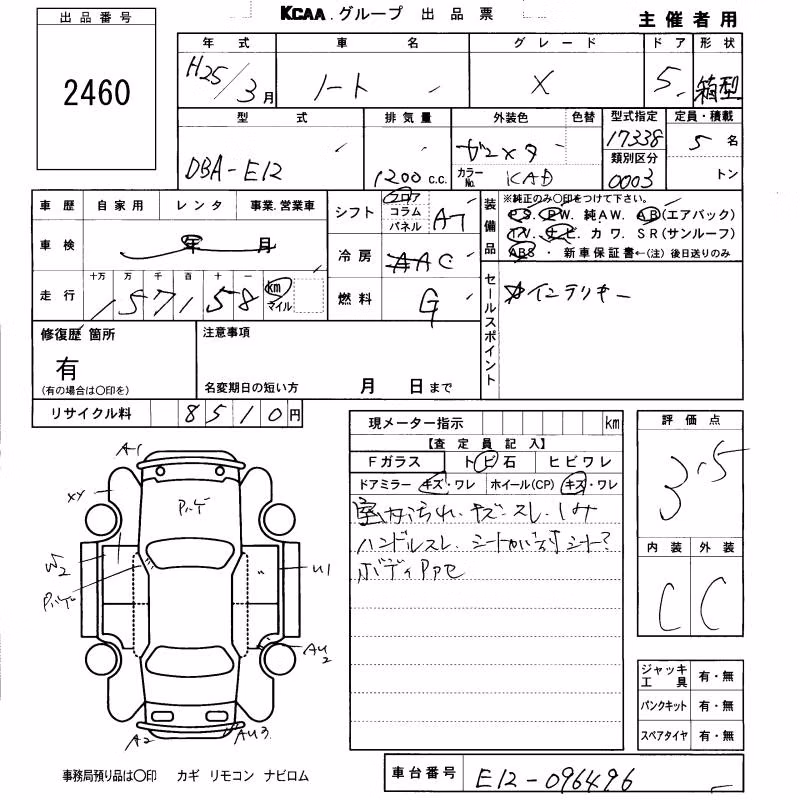 出品番号
2460
KCAA.グループ 出品票
主催者用
年式 車名 グレード ドア 形状
H25/3月 ノート X 5 箱型
型式 排気量 外装色 色替 型式指定 定員・積載
DBA-E12 1200 c.c. 17338 5名
カラーNo. KAD 類別区分 0003 トン
車歴 自家用 レンタ 事業.営業車
車検 年 月
走行 十万 万 千 百 十 一
157158 km マイル
シフト フロア コラム パネル AT
冷房 AAC
燃料 G
装備品
※純正のみ○印をつけて下さい。
PS. PW. 純AW. AB(エアバック)
TV. ナビ. カワ. SR(サンルーフ)
ABS ・ 新車保証書←(注) 後日送りのみ
セールスポイント
インテリキー
修復歴 箇所
有
(有の場合は○印を)
注意事項
名変期日の短い方 月 日まで
リサイクル料 8510円
現メーター指示 km
【査定員記入】
Fガラス トビ石 ヒビワレ
ドアミラー キズ・ワレ ホイール(CP) キズ・ワレ
室内汚れ.キズ.スレ.シミ
ハンドルスレ.
ボディ
評価点
3.5
内装 外装
C C
A1
XY
W2
U1
AU2
A2
AU3
ジャッキ工具 有・無
パンクキット 有・無
スペアタイヤ 有・無
事務局預り品は○印 カギ リモコン ナビロム
車台番号 E12-096496